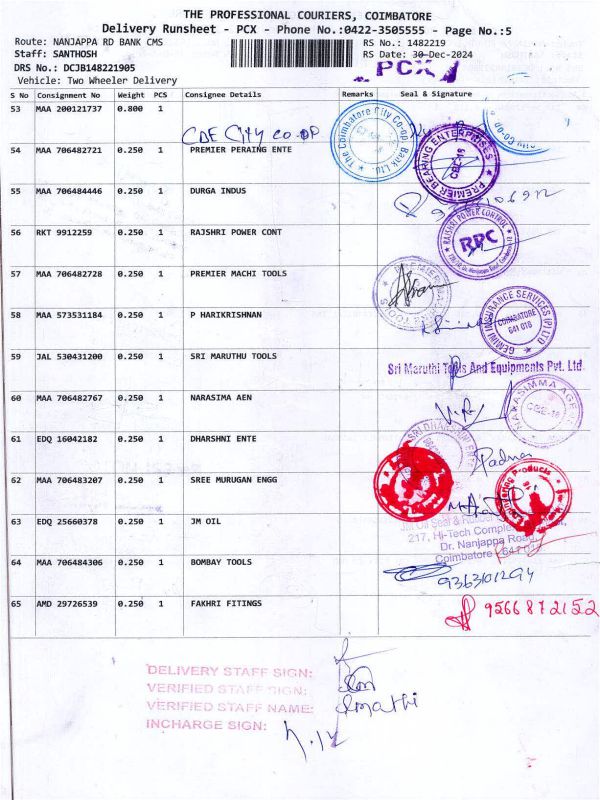 THE PROFESSIONAL COURIERS, COIMBATORE
Delivery Runsheet - PCX - Phone No.:0422-3505555 - Page No.:5
Route: NANJAPPA RD BANK CMS
Staff: SANTHOSH
DRS No.: DCJB148221905
Vehicle: Two Wheeler Delivery
RS No.: 1482219
RS Date: 30-Dec-2024
PCX
S No Consignment No Weight PCS Consignee Details Remarks Seal & Signature
53 MAA 200121737 0.800 1
CBE CITY CO-OP
The Coimbatore City Co-op Bank Ltd.
54 MAA 706482721 0.250 1 PREMIER PERAING ENTE
PREMIER BEARING ENTERPRISES
55 MAA 706484446 0.250 1 DURGA INDUS
56 RKT 9912259 0.250 1 RAJSHRI POWER CONT
RAJSHRI POWER CONTROL
RPC
57 MAA 706482728 0.250 1 PREMIER MACHI TOOLS
58 MAA 573531184 0.250 1 P HARIKRISHNAN
GEMINI INSURANCE SERVICES (P) LTD
COIMBATORE
641 018
59 JAL 530431200 0.250 1 SRI MARUTHU TOOLS
Sri Maruthi Tools And Equipments Pvt. Ltd.
60 MAA 706482767 0.250 1 NARASIMA AEN
61 EDQ 16042182 0.250 1 DHARSHNI ENTE
62 MAA 706483207 0.250 1 SREE MURUGAN ENGG
Engineering Products
63 EDQ 25660378 0.250 1 JM OIL
217, Hi-Tech Complex
Dr. Nanjappa Road,
Coimbatore
64 MAA 706484306 0.250 1 BOMBAY TOOLS
9363101294
65 AMD 29726539 0.250 1 FAKHRI FITINGS
9566872152
DELIVERY STAFF SIGN:
VERIFIED STAFF SIGN:
VERIFIED STAFF NAME:
INCHARGE SIGN: